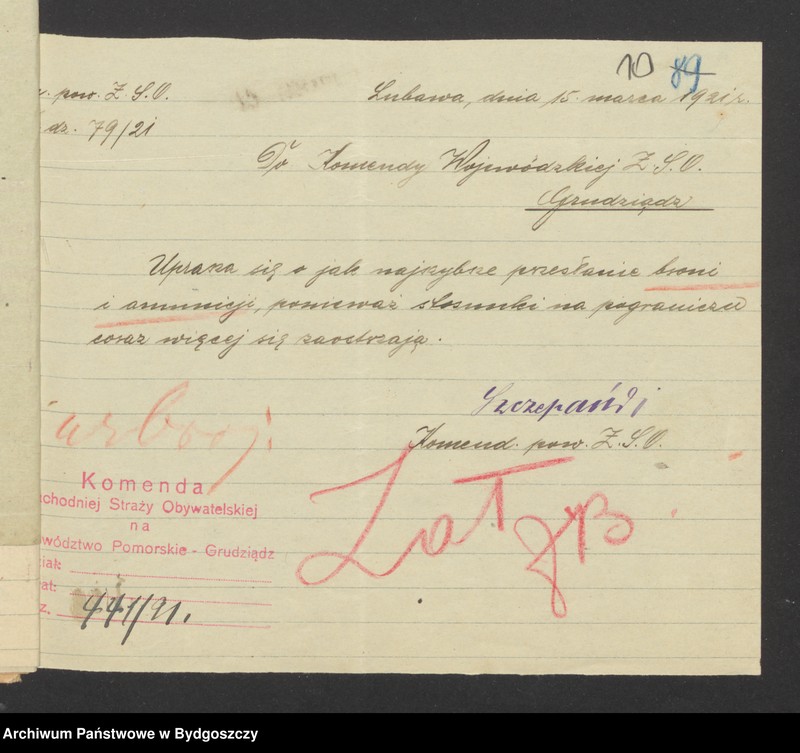 10 89
pow. Z. S. O.
Lubawa, dnia 15. marca 1921 r.
dz. 79/21
Do Komendy Wojewódzkiej Z. S. O.
Grudziądz
Uprasza się o jak najszybsze przesłanie broni
i amunicji, ponieważ stosunki na pograniczu
coraz więcej się zaostrzają.
Szczepański
Komend. pow. Z. S. O.
Komenda
chodniej Straży Obywatelskiej
na
wództwo Pomorskie - Grudziądz
441/21.
Archiwum Państwowe w Bydgoszczy